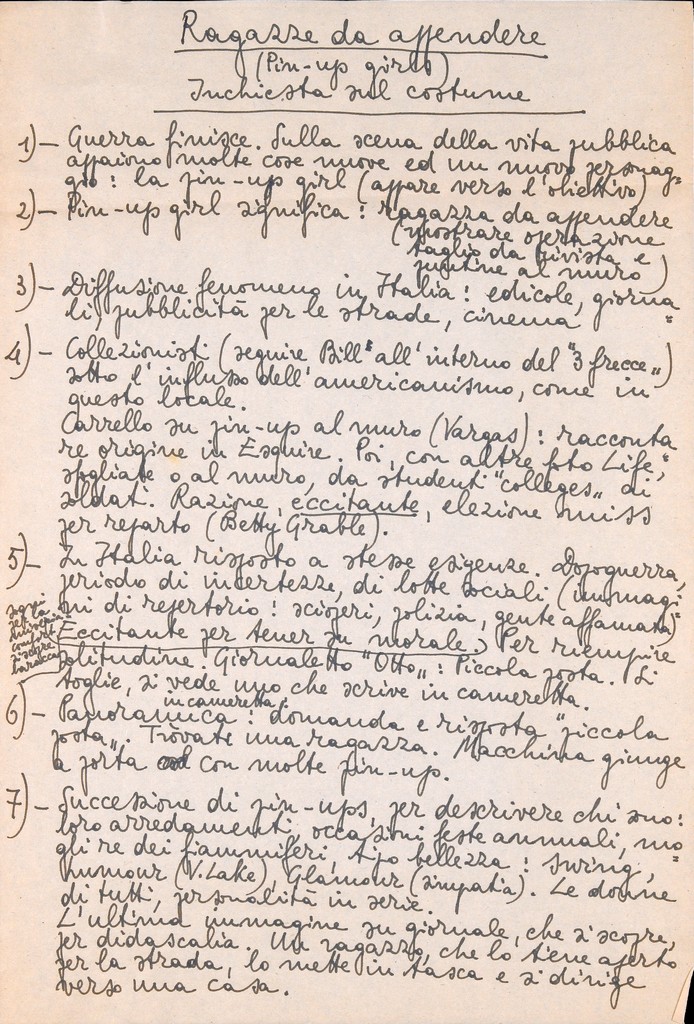 Ragazze da appendere
(Pin-up girls)
Inchiesta sul costume
1) - Guerra finisce. Sulla scena della vita pubblica
appaiono molte cose nuove ed un nuovo personag=
gio: la pin-up girl (appare verso l'obiettivo)
2) - Pin-up girl significa: ragazza da appendere
(mostrare operazione
taglio da rivista e
puntine al muro)
3) - Diffusione fenomeno in Italia: edicole, giorna=
li, pubblicità per le strade, cinema
4) - Collezionisti (seguire Bill all'interno del "3 frecce")
sotto l'influsso dell'americanismo, come in
questo locale.
Carrello su pin-up al muro (Vargas): racconta
re origine in Esquire. Poi, con altre foto Life,
spogliate o al muro, da studenti "colleges" di
soldati. Razione, eccitante, elezione miss
per reparto (Betty Grable).
5) - In Italia risposto a stesse esigenze. Dopoguerra,
periodo di incertezze, di lotte sociali (immagi=
ni di repertorio: scioperi, polizia, gente affamata)
Eccitante per tener su morale. Per riempire
solitudine. Giornaletto "Otto": Piccola posta. Si
toglie, si vede uno che scrive in cameretta.
6) - Panoramica in cameretta: domanda e risposta "piccola
posta". Trovate una ragazza. Macchina giunge
a porta con molte pin-up.
7) - Successione di pin-ups, per descrivere chi sono:
loro arredamenti, occasioni feste annuali, mo=
gli re dei fiammiferi, tipo bellezza: Swing,
humour (V. Lake), Glamour (simpatia). Le donne
di tutti, personalità in serie.
L'ultima immagine su giornale, che si scopre,
per didascalia. Un ragazzo, che lo tiene aperto
per la strada, lo mette in tasca e si dirige
verso una casa.